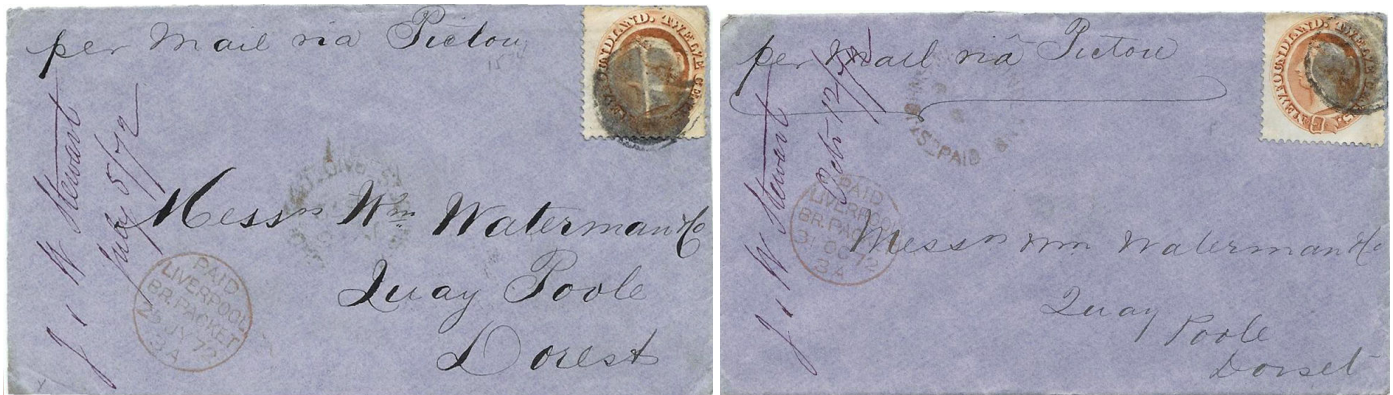 per Mail via Pictou
NEWFOUNDLAND. TWELVE CENTS
J & W Stewart
July 5/72
Messrs Wm Waterman & Co
Quay Poole
Dorest
PAID
LIVERPOOL
BR. PACKET
JY 72
3A
per Mail via Pictou
NEWFOUNDLAND. TWELVE
J & W Stewart
Octr 12/72
PAID
PAID
LIVERPOOL
BR. PACKET
31 OC 72
3A
Messrs Wm Waterman & Co
Quay
Poole
Dorset